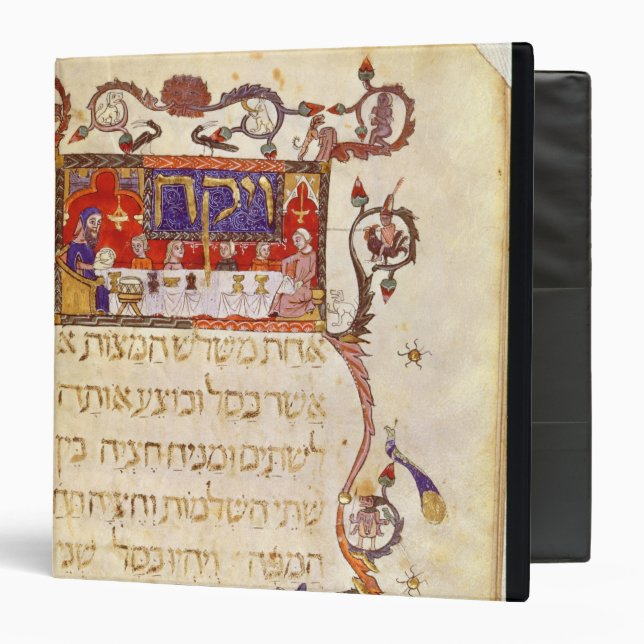 ויקח
אחת משלש המצות א
אשר בסל ובוצע אותה
לשתים ומניח חציה בין
שתי השלמות וחציה תח
המפה ויהיו בסל שני